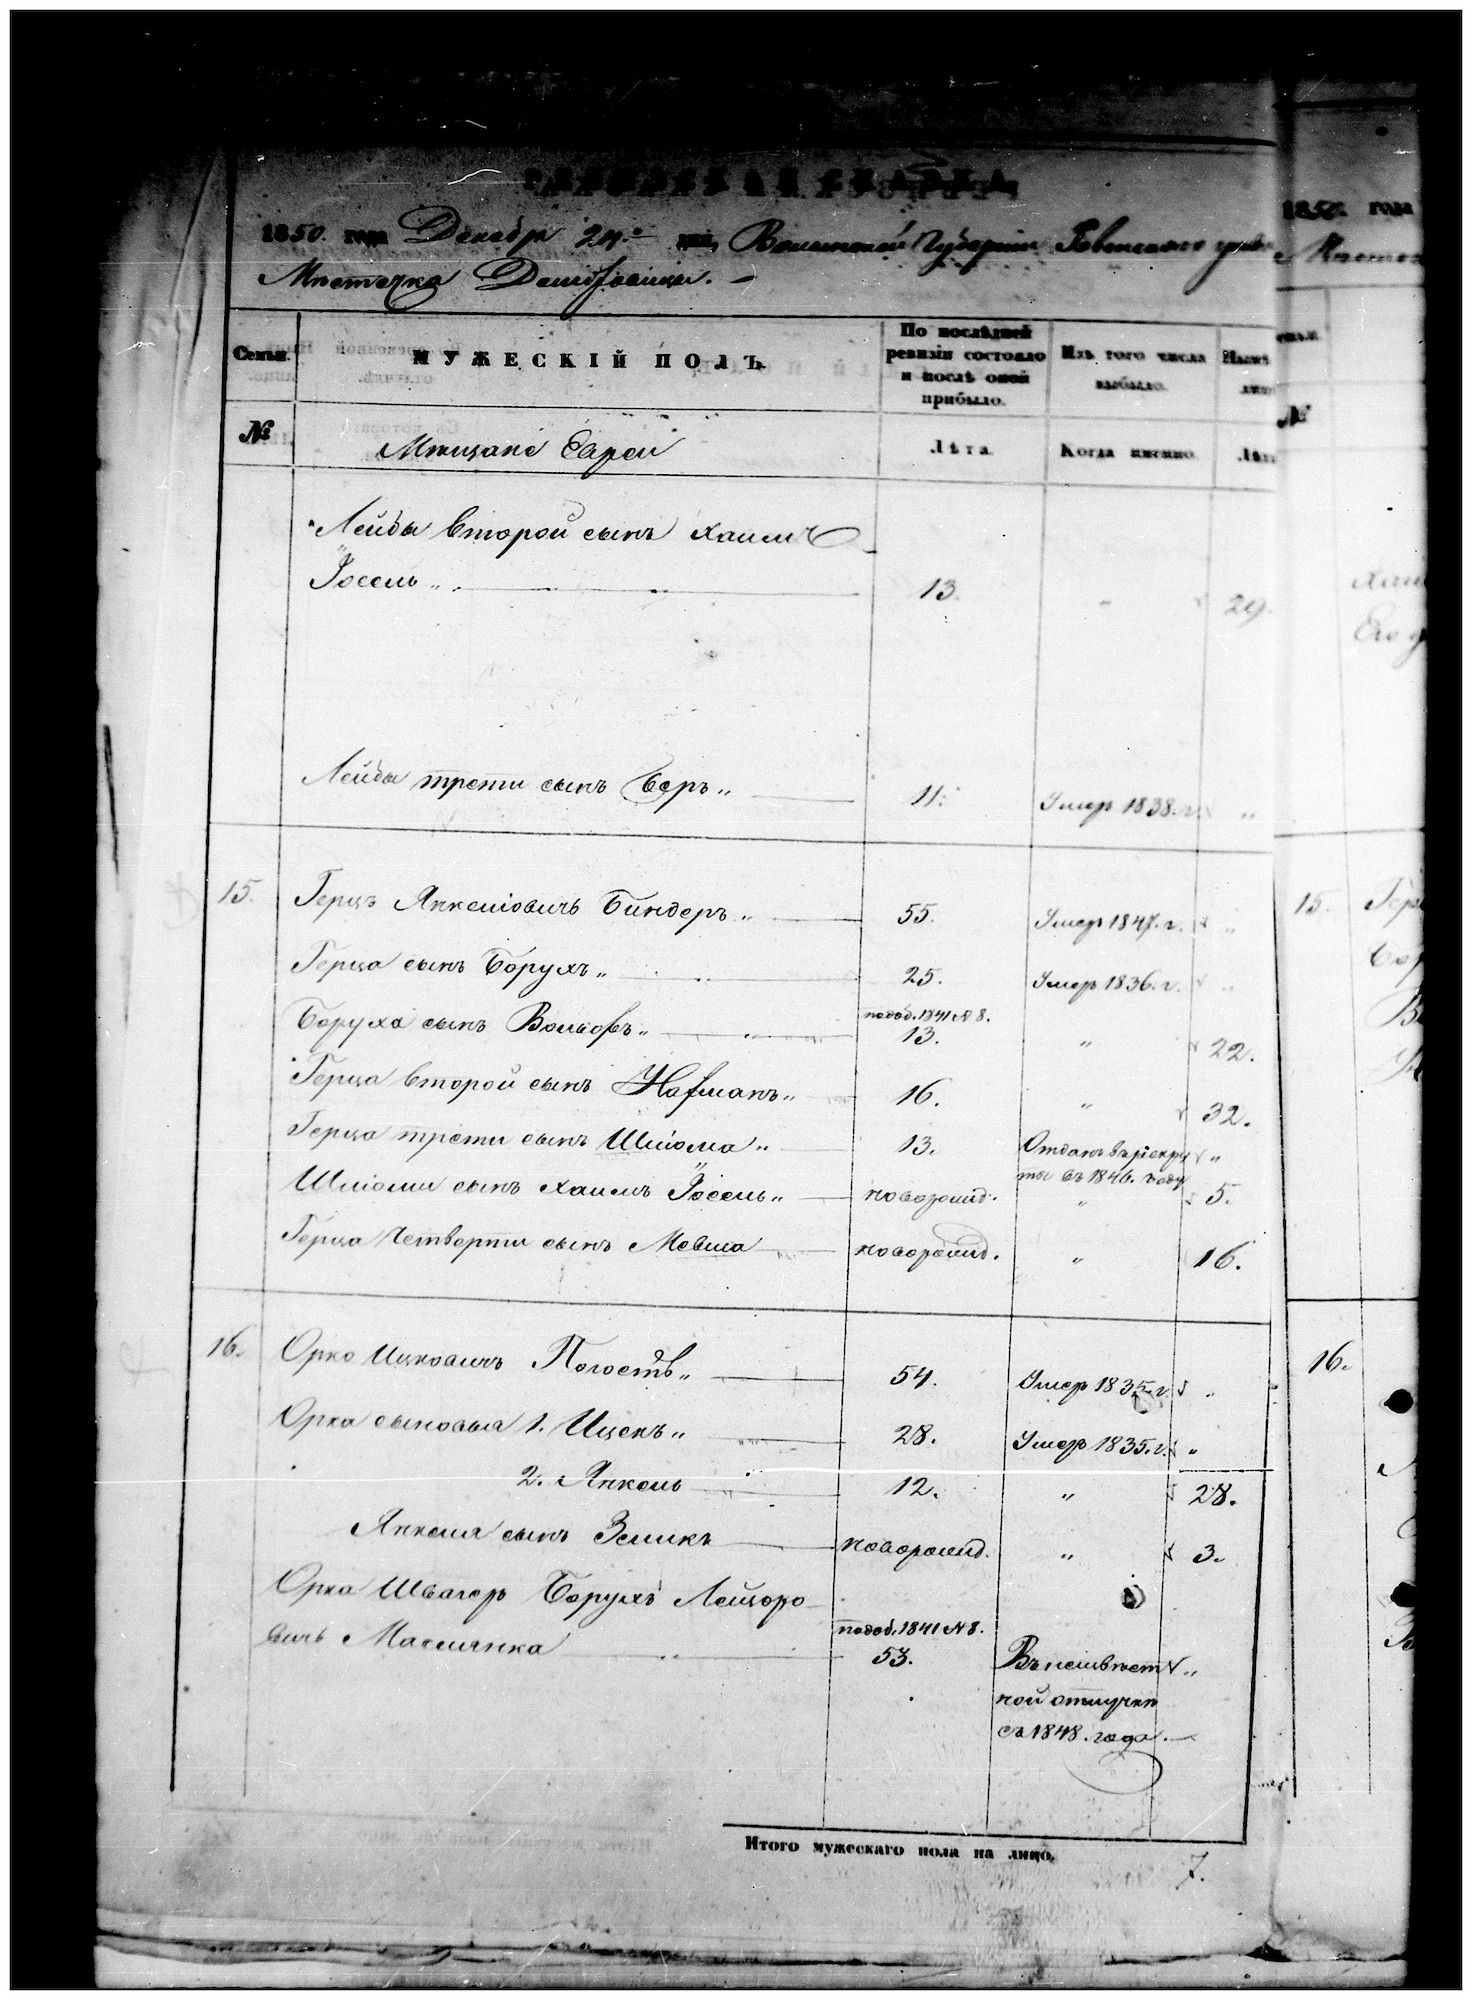 РЕВИЗСКАЯ СКАЗКА,
1850. года Декабря 24.о дня, Волынской Губерніи Ровенскаго уезда
Мѣстечка Демидовки. —
Семьи. МУЖЕСКІЙ ПОЛЪ. По послѣдней ревизіи состояло и послѣ оной прибыло. Изъ того числа выбыло.
№ Мѣщане Евреи Лѣта. Когда именно. Лѣта
Лейбы второй сынъ Хаимъ
Іосель „ 13. „ 29.
Лейбы трети сынъ Беръ „ 11. Умеръ 1838. г. „
15. Герцъ Янкеліовичъ Биндеръ „ 55. Умеръ 1847. г. „
Герца сынъ Борухъ „ 25. Умеръ 1836. г. „
Боруха сынъ Вольовъ „ подоб. 1841 № 8. 13. „ 22.
Герца второй сынъ Нафманъ „ 16. „ 32.
Герца трети сынъ Шліома „ 13. Отданъ въ рекру „
ты въ 1846. году
Шліоми сынъ Хаимъ Іосель „ новорожд. „ 5.
Герца Четверти сынъ Мовша новорожд. „ 16.
16. Орко Ицковичъ Погостъ „ 54. Умеръ 1835. г. „
Орка сыновья 1. Ицекъ „ 28. Умеръ 1835. г. „
2. Янкель 12. „ 28.
Янкеля сынъ Зеликъ новорожд. „ 3.
Орка Швагеръ Борухъ Лейзоро
вичъ Маслянка подоб. 1841 № 8. 53. Въ неизвѣст „
ной отлучкѣ
съ 1848. года. —
Итого мужескаго пола на лицо. 7.
1850. года
№
15.
16.